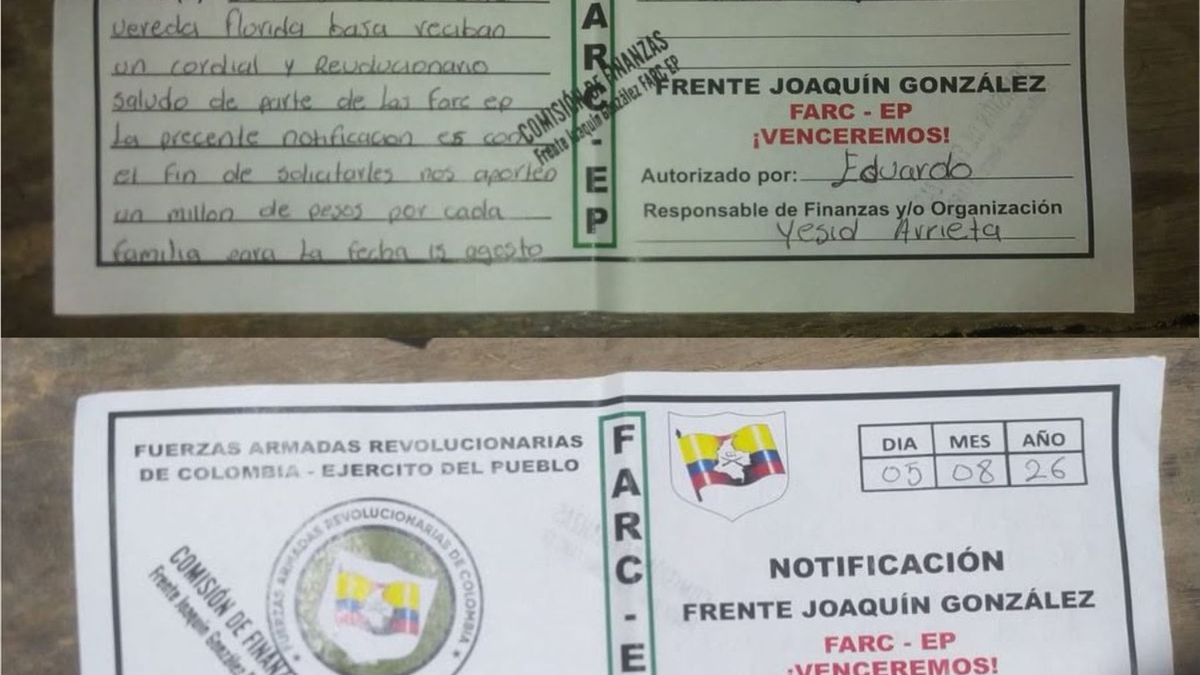 vereda florida baja reciban
un cordial y Revolucionario
saludo de parte de las farc ep
la precente notificacion es con
el fin de solicitarles nos aporten
un millon de pesos por cada
familia para la fecha 15 agosto
FARC - EP
COMISIÓN DE FINANZAS
Frente Joaquín González FARC EP
FRENTE JOAQUÍN GONZÁLEZ
FARC - EP
¡VENCEREMOS!
Autorizado por: Eduardo
Responsable de Finanzas y/o Organización
Yesid Arrieta
FUERZAS ARMADAS REVOLUCIONARIAS
DE COLOMBIA - EJERCITO DEL PUEBLO
FUERZAS ARMADAS REVOLUCIONARIAS DE COLOMBIA
COMISIÓN DE FINAN
Frente Joaquín González
FARC - E
DIA MES AÑO
05 08 26
NOTIFICACIÓN
FRENTE JOAQUÍN GONZÁLEZ
FARC - EP
¡VENCEREMOS!